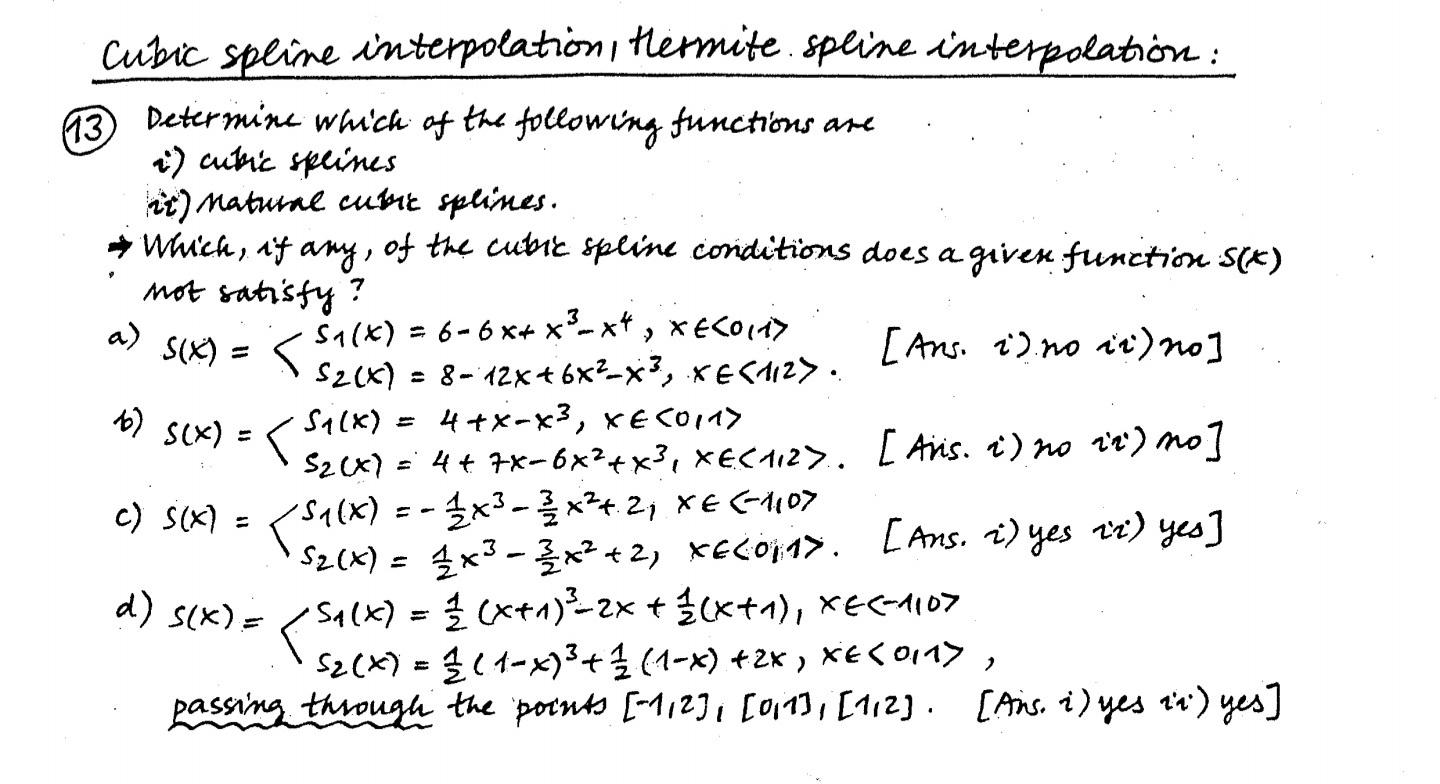 Cubic spline interpolation, Hermite spline interpolation:
13 Determine which of the following functions are
i) cubic splines
ii) natural cubic splines.
→ Which, if any, of the cubic spline conditions does a given function S(x)
not satisfy?
a) S(x) = S1(x) = 6-6x+x³-x⁴, x∈<0,1> [Ans. i) no ii) no]
S2(x) = 8-12x+6x²-x³, x∈<1,2>.
b) S(x) = S1(x) = 4+x-x³, x∈<0,1>
S2(x) = 4+7x-6x²+x³, x∈<1,2>. [Ans. i) no ii) no]
c) S(x) = S1(x) = -1/2x³-3/2x²+2, x∈<-1,0>
S2(x) = 1/2x³-3/2x²+2, x∈<0,1>. [Ans. i) yes ii) yes]
d) S(x) = S1(x) = 1/2(x+1)³-2x+1/2(x+1), x∈<-1,0>
S2(x) = 1/2(1-x)³+1/2(1-x)+2x, x∈<0,1>,
passing through the points [-1,2], [0,1], [1,2]. [Ans. i) yes ii) yes]